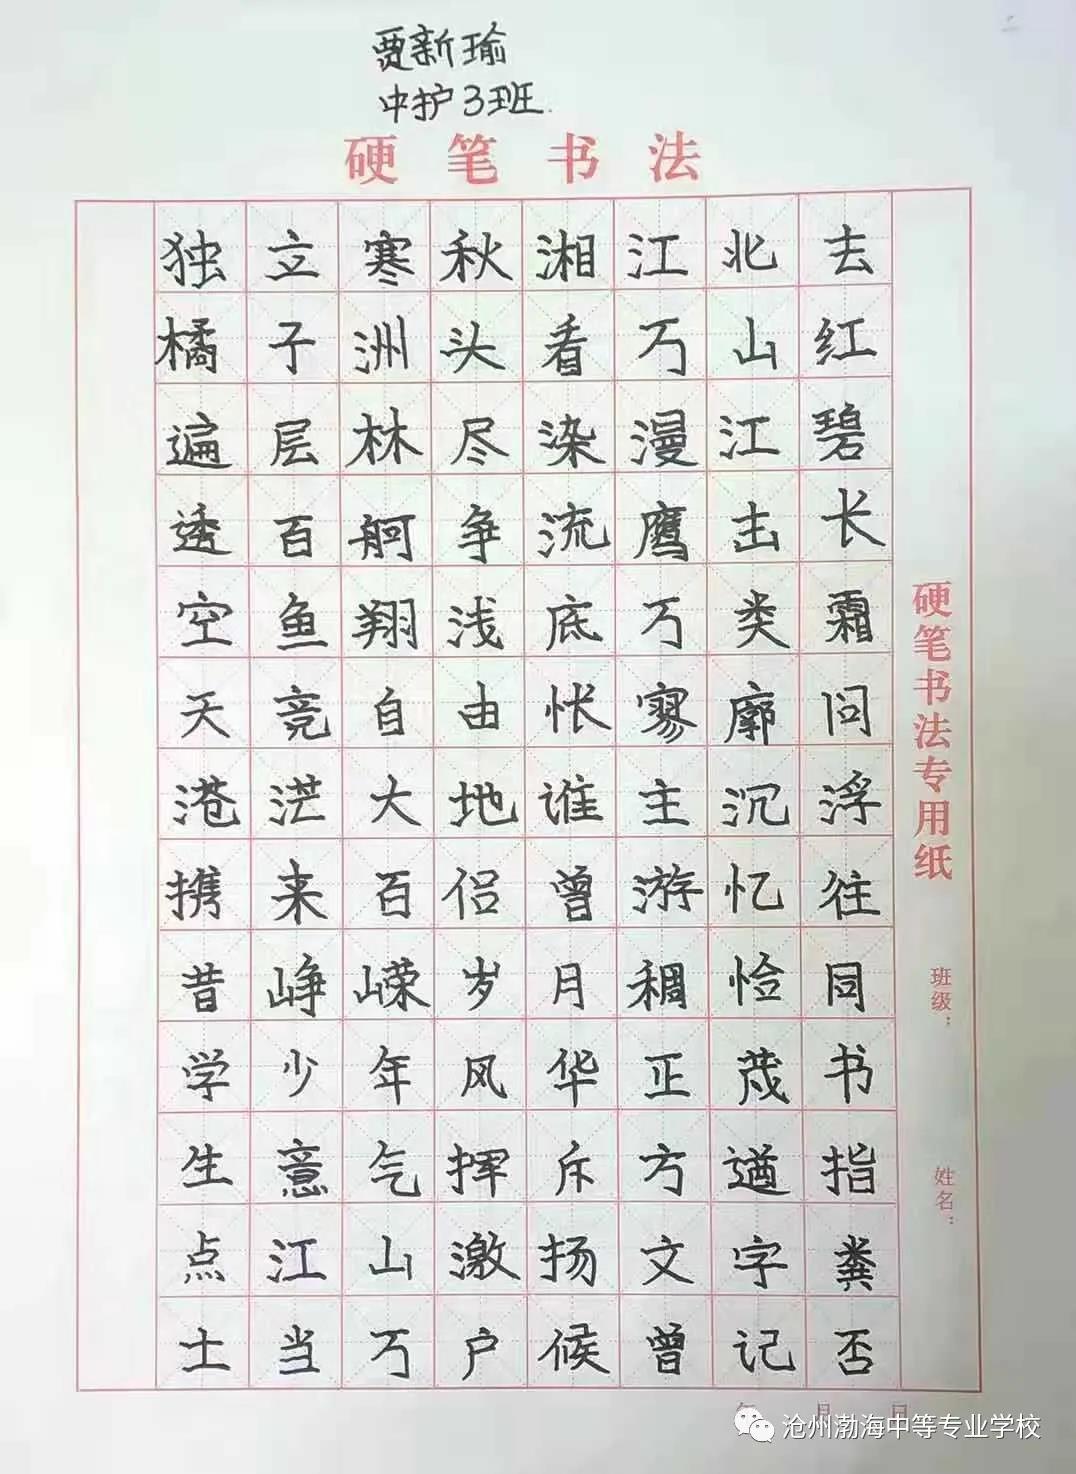 贾新瑜
中护3班.
硬笔书法
独立寒秋湘江北去
橘子洲头看万山红
遍层林尽染漫江碧
透百舸争流鹰击长
空鱼翔浅底万类霜
天竞自由怅寥廓问
苍茫大地谁主沉浮
携来百侣曾游忆往
昔峥嵘岁月稠恰同
学少年风华正茂书
生意气挥斥方遒指
点江山激扬文字粪
土当万户候曾记否
硬笔书法专用纸
班级：
姓名：
年 月 日
沧州渤海中等专业学校